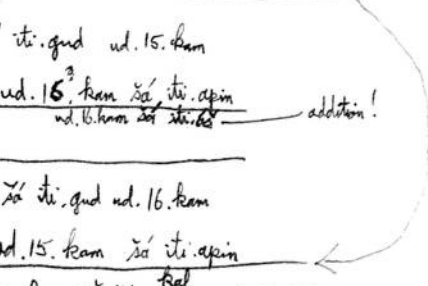 iti.gud ud.15.kam
ud.15?.kam šá iti.apin
ud.16.kam šá iti. addition!
šá iti.gud ud.16.kam
ud.15.kam šá iti.apin
kal